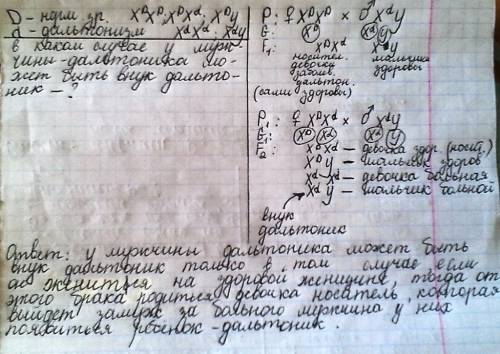 D – норм. зр. X^D X^D; X^D X^d; X^D y
d – дальтонизм X^d X^d; X^d y
в каком случае у муж-
чины-дальтоника мо-
жет быть внук дальто-
ник – ?
P: ♀ X^D X^D × ♂ X^d y
G: X^D X^d y
F₁: X^D X^d X^D y
носител. мальчики
девочки здоровы
заболев.
дальтон.
(сами здоровы)
P₁: ♀ X^D X^d × ♂ X^d y
G₁: X^D X^d X^d y
F₂: X^D X^d – девочка здор. (носит.)
X^D y – мальчик здоров
X^d X^d – девочка больная
X^d y – мальчик больной
внук
дальтоник
Ответ: у мужчины дальтоника может быть
внук дальтоник только в том случае если
он женится на здоровой женщине, тогда от
этого брака родиться девочка носитель, которая
выйдет замуж за больного мужчина у них
появиться ребёнок-дальтоник.